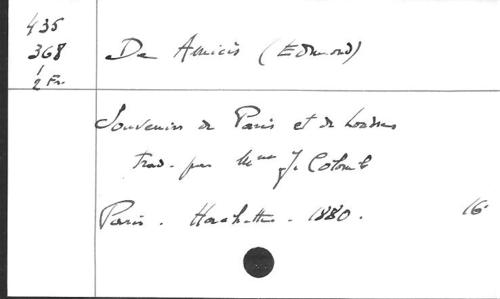 435
368
1
2 Fr.
De Amicis (Edmond)
Souvenirs de Paris et de Londres
trad. par Mme J. Colomb
Paris. Hachette. 1880. 16°